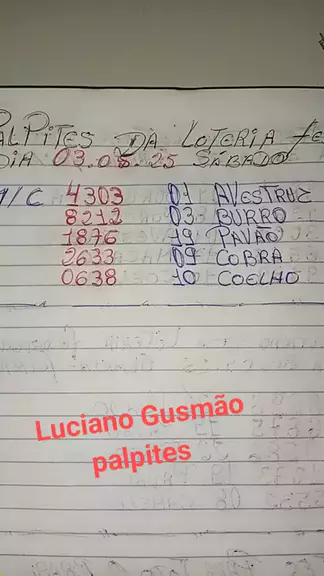 PALPITES DA LOTERIA FE
DIA 03.05.25 SÁBADO
M/C 4303 01 AVESTRUZ
8212 03 BURRO
1876 19 PAVÃO
2633 09 COBRA
0638 10 COELHO
Luciano Gusmão
palpites